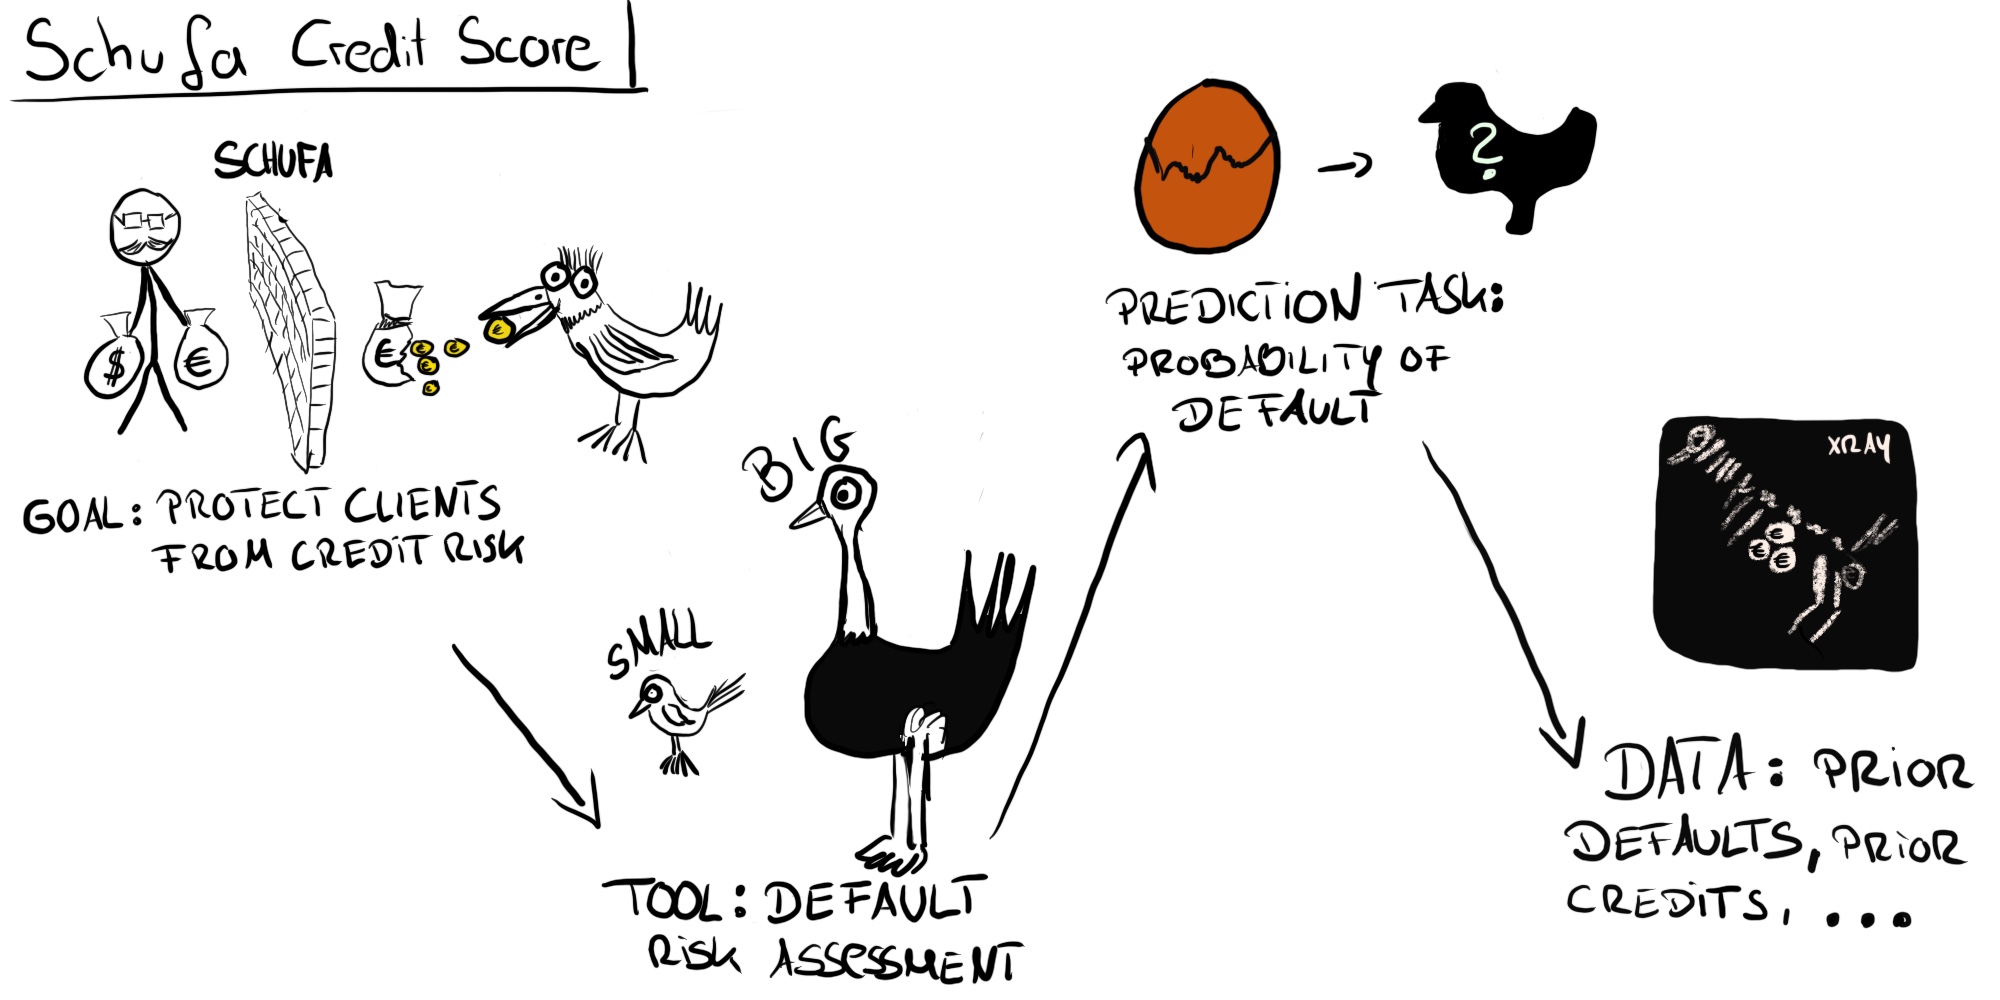 Schufa Credit Score
SCHUFA
$
€
€
€
GOAL: PROTECT CLIENTS
FROM CREDIT RISK
SMALL
BIG
TOOL: DEFAULT
RISK ASSESSMENT
?
PREDICTION TASK:
PROBABILITY OF
DEFAULT
XRAY
€
€ €
DATA: PRIOR
DEFAULTS, PRIOR
CREDITS, ...